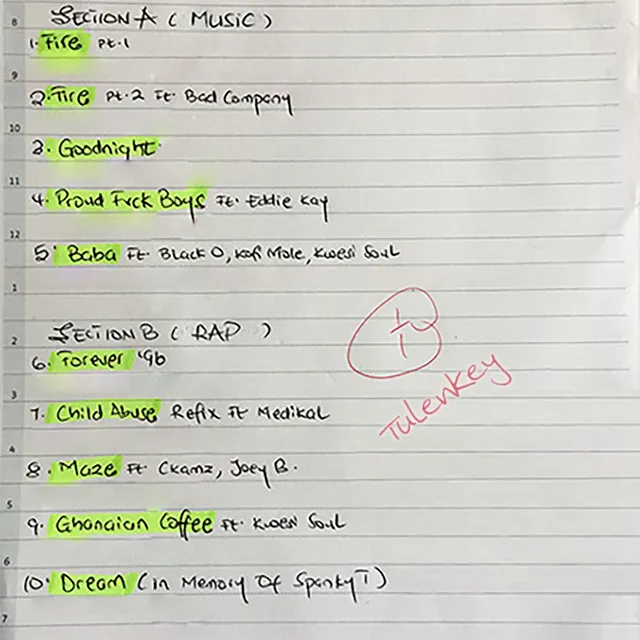 8
SECTION A ( MUSIC )
1. Fire Pt.1
9
2. Fire Pt.2 Ft. Bad Company
10
3. Goodnight.
11
4. Proud Fvck Boys Ft. Eddie Kay
12
5. Baba Ft. Black O, Kofi Mole, Kwesi Soul
1
2
SECTION B ( RAP )
6. Forever '96
1/1
Tulenkey
3
7. Child Abuse Refix Ft Medikal
4
8. Maze Ft. Ckamz, Joey B.
5
9. Ghanaian Coffee Ft. Kwesi Soul
6
10. Dream (in Memory Of Spanky T)
7